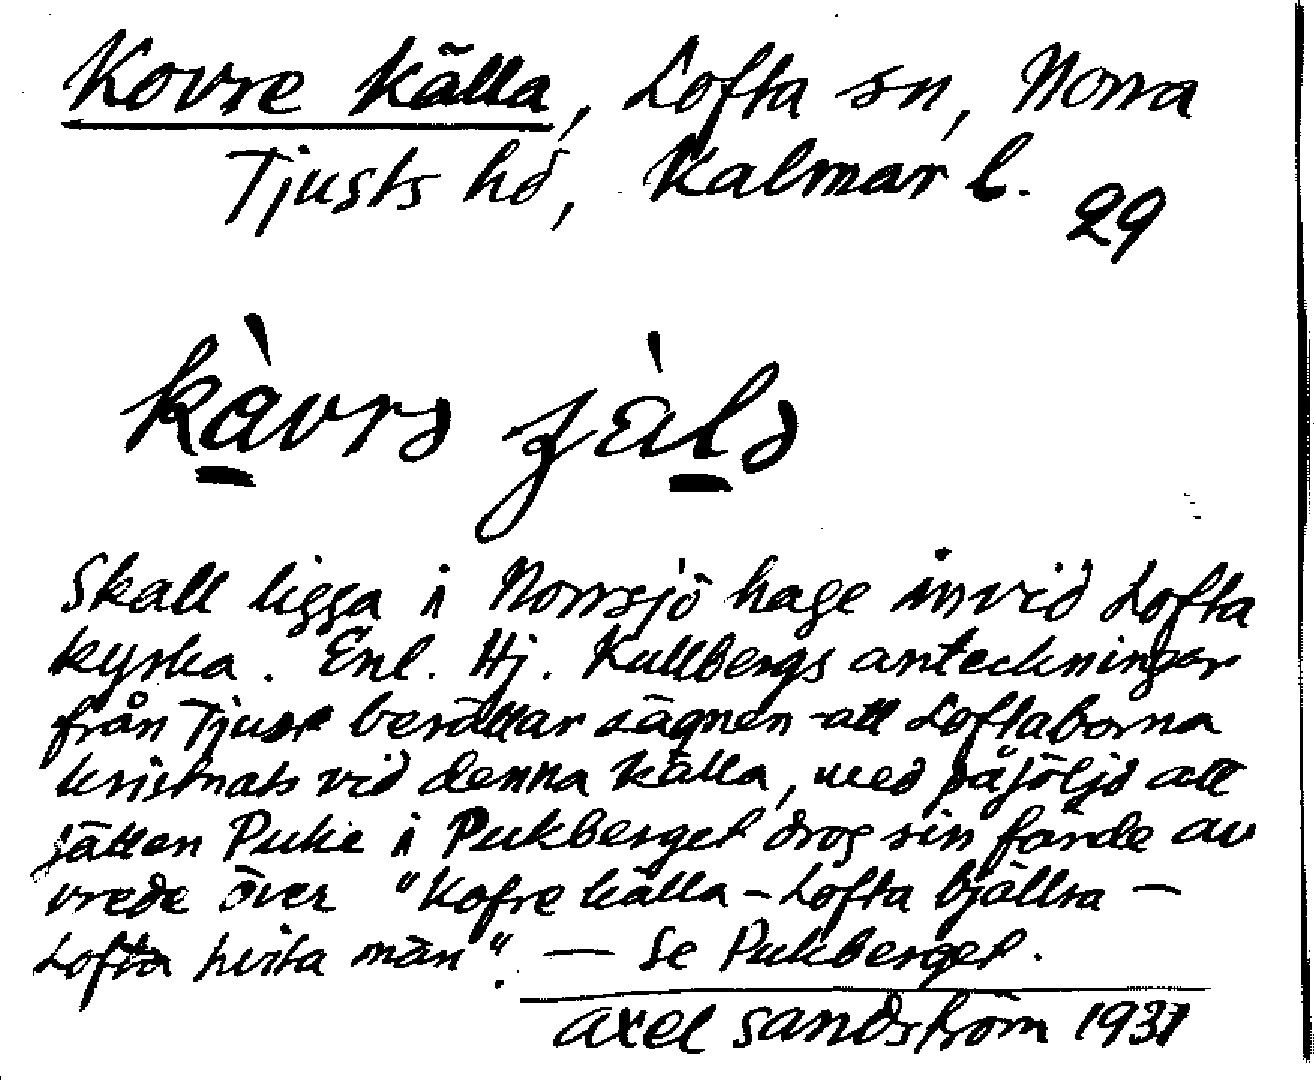 Kovre källa, Lofta sn, Norra
Tjusts hd, Kalmar l.
29
Skall ligga i Norrsjö hage invid Lofta
kyrka. Enl. Hj. Kullbergs anteckningar
från Tjust berättar sägnen att Loftaborna
kristnats vid denna källa, med påföljd att
jätten Puke i Pukberget drog sin färde av
vrede över "Kofre källa - Lofta bjällra -
Lofta hvita män". - Se Pukberget.
Axel Sandström 1931